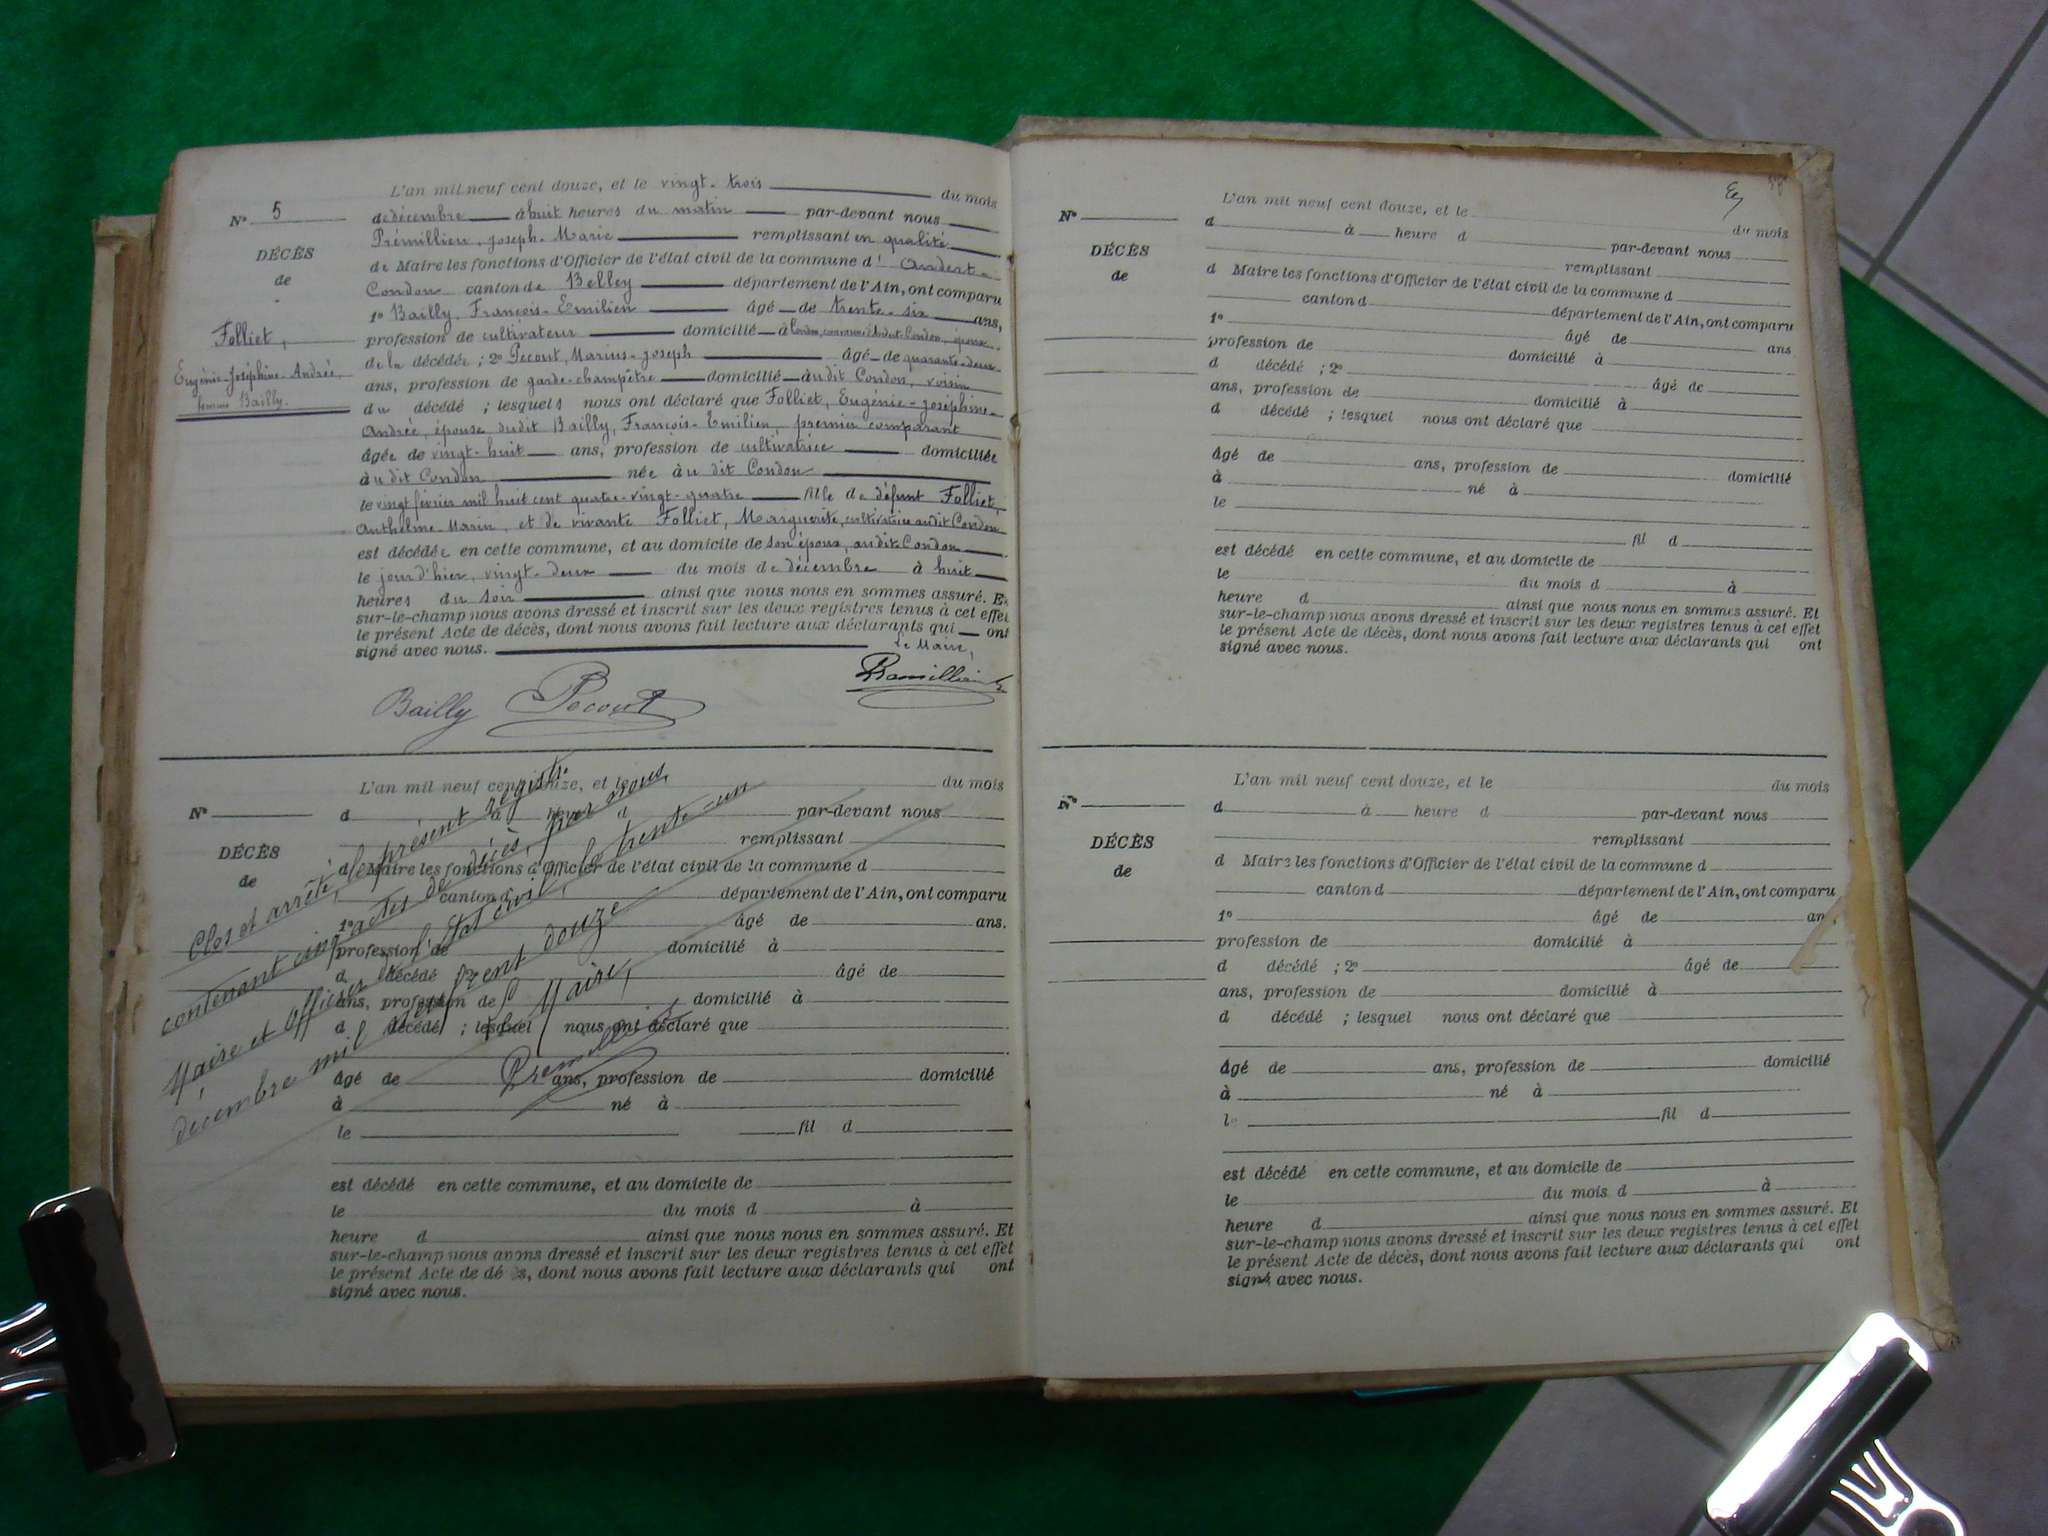 L'an mil neuf cent douze, et le vingt-trois du mois
N° 5
de décembre à huit heures du matin par-devant nous
Prémillieu, Joseph-Marie remplissant en qualité
DÉCÈS
de Maire les fonctions d'Officier de l'état civil de la commune d'Andert-
de
Condon canton de Belley département de l'Ain, ont comparu
1° Bailly, François-Emilien âgé de trente-six ans,
Folliet,
profession de cultivateur domicilié à Condon, commune d'Andert-Condon, époux
de la décédée ; 2° Pecout, Marius-Joseph âgé de quarante-deux
Eugénie-Joséphine-Andrée,
ans, profession de garde-champêtre domicilié audit Condon, voisin
femme Bailly.
du décédé ; lesquels nous ont déclaré que Folliet, Eugénie-Joséphine-
Andrée, épouse dudit Bailly, François-Emilien, premier comparant
âgée de vingt-huit ans, profession de cultivatrice domiciliée
àu dit Condon née àu dit Condon
le vingt février mil huit cent quatre-vingt-quatre fille de défunt Folliet,
Anthelme-Marin, et de vivante Folliet, Marguerite, cultivatrice audit Condon
est décédée en cette commune, et au domicile de son époux, audit Condon
le jour d'hier, vingt-deux du mois de décembre à huit
heures du soir ainsi que nous nous en sommes assuré. Et
sur-le-champ nous avons dressé et inscrit sur les deux registres tenus à cet effet
le présent Acte de décès, dont nous avons fait lecture aux déclarants qui ont
signé avec nous.
Le Maire,
Bailly Pecout Prémillieu
L'an mil neuf cent douze, et le du mois
N°
d à heure d par-devant nous
remplissant
DÉCÈS
d Maire les fonctions d'Officier de l'état civil de la commune d
de
canton d département de l'Ain, ont comparu
1° âgé de ans.
profession de domicilié à
d décédé ; 2° âgé de
ans, profession de domicilié à
d décédé ; lesquel nous ont déclaré que
âgé de ans, profession de domicilié
à né à
le fil d
est décédé en cette commune, et au domicile de
le du mois d à
heure d ainsi que nous nous en sommes assuré. Et
sur-le-champ nous avons dressé et inscrit sur les deux registres tenus à cet effet
le présent Acte de décès, dont nous avons fait lecture aux déclarants qui ont
signé avec nous.
Clos et arrêté le présent registre
contenant cinq actes de décès, par nous,
Maire et Officier de l'état civil, le trente-un
décembre mil neuf cent douze
Le Maire,
Prémillieu
L'an mil neuf cent douze, et le du mois
N°
d à heure d par-devant nous
remplissant
DÉCÈS
d Maire les fonctions d'Officier de l'état civil de la commune d
de
canton d département de l'Ain, ont comparu
1° âgé de ans
profession de domicilié à
d décédé ; 2° âgé de
ans, profession de domicilié à
d décédé ; lesquel nous ont déclaré que
âgé de ans, profession de domicilié
à né à
le
fil d
est décédé en cette commune, et au domicile de
le du mois d à
heure d ainsi que nous nous en sommes assuré. Et
sur-le-champ nous avons dressé et inscrit sur les deux registres tenus à cet effet
le présent Acte de décès, dont nous avons fait lecture aux déclarants qui ont
signé avec nous.
L'an mil neuf cent douze, et le du mois
N°
d à heure d par-devant nous
remplissant
DÉCÈS
d Maire les fonctions d'Officier de l'état civil de la commune d
de
canton d département de l'Ain, ont comparu
1° âgé de an
profession de domicilié à
d décédé ; 2° âgé de
ans, profession de domicilié à
d décédé ; lesquel nous ont déclaré que
âgé de ans, profession de domicilié
à né à
le fil d
est décédé en cette commune, et au domicile de
le du mois d à
heure d ainsi que nous nous en sommes assuré. Et
sur-le-champ nous avons dressé et inscrit sur les deux registres tenus à cet effet
le présent Acte de décès, dont nous avons fait lecture aux déclarants qui ont
signé avec nous.